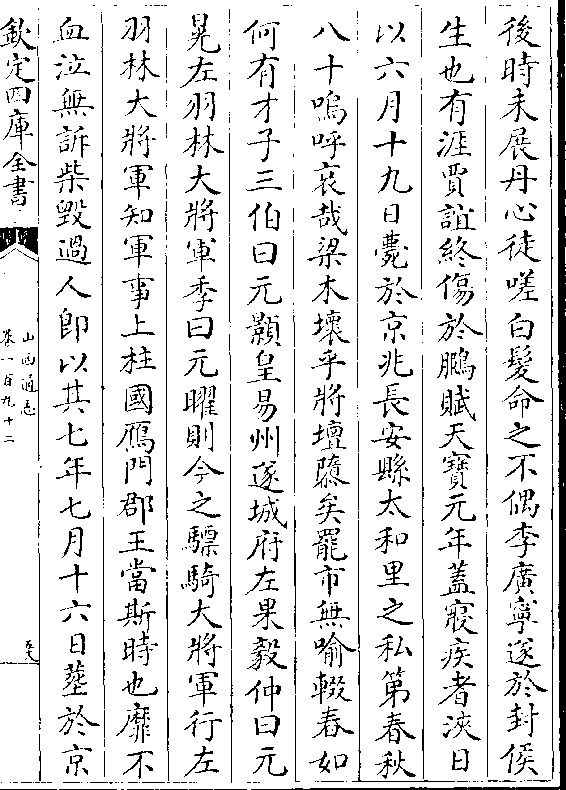 後時未展丹心徒嗟白髮命之不偶李廣寧遂於封侯
生也有涯賈誼終傷於鵩賦天寶元年蓋寢疾者浹日
以六月十九日薨於京兆長安縣太和里之私第春秋
八十嗚呼哀哉梁木壞乎將壇隳矣罷市無喻輟舂如
何有才子三伯曰元顥皇易州遂城府左果毅仲曰元
晃左羽林大將軍季曰元曜則今之驃騎大將軍行左
羽林大將軍知軍事上柱國鴈門郡王當斯時也靡不
血泣無訴柴毀過人即以其七年七月十六日塟於京
欽定四庫全書
山西通志
卷一百九十二